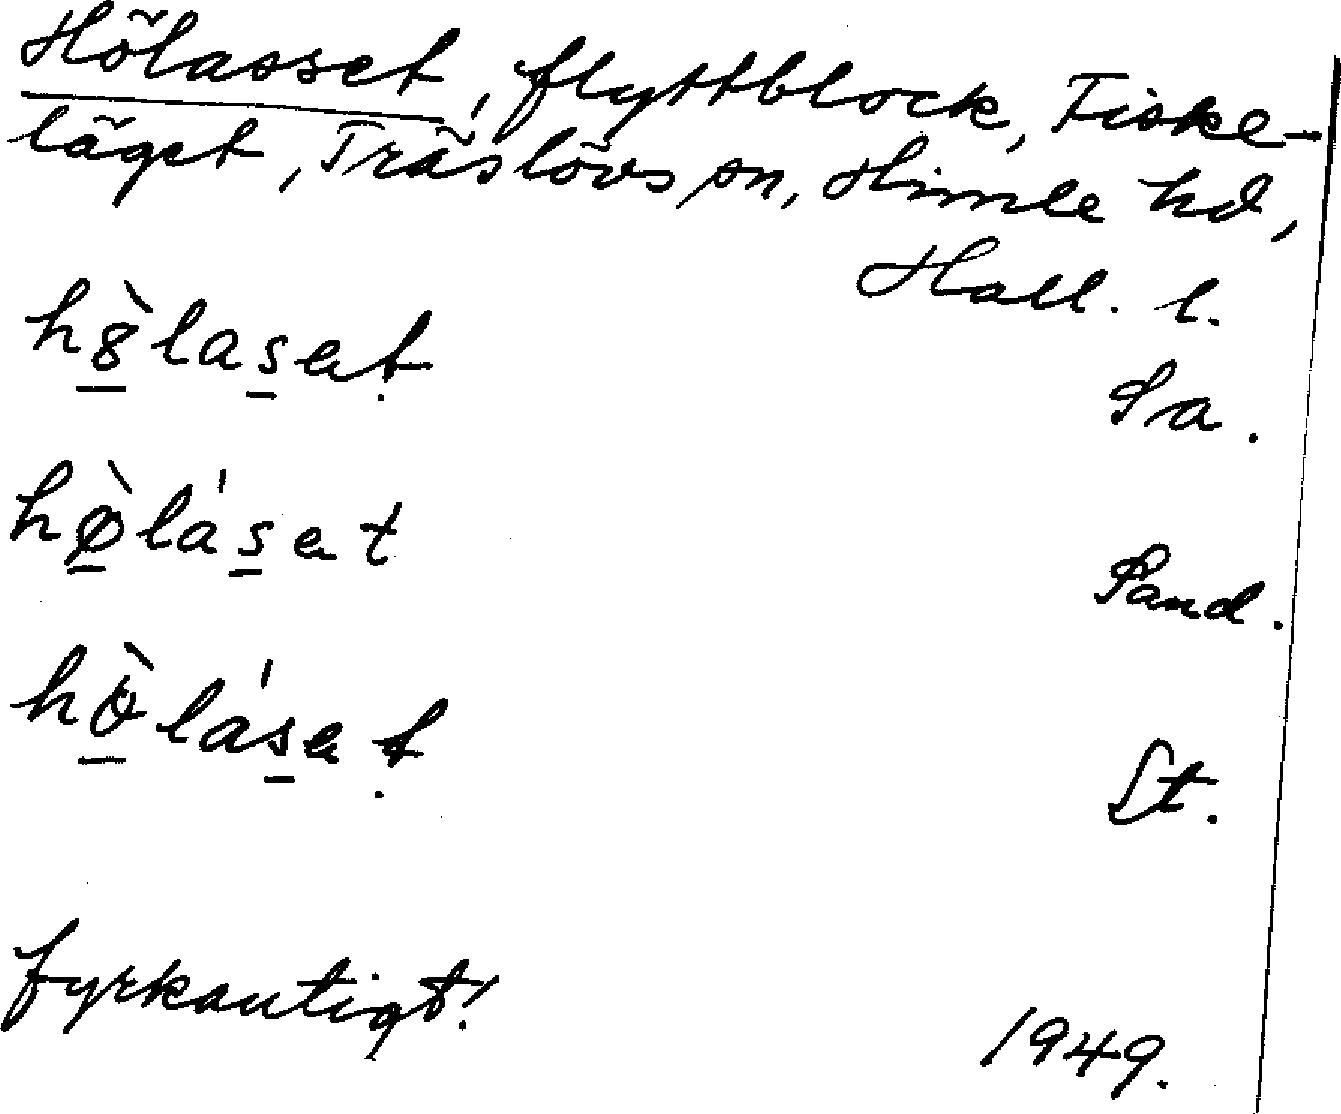 Hölasset, flyttblock, Fiske-
läget, Träslövs sn, Himle hd,
Hall. l.
hòlaset Sa.
hø̀láset Sand.
hòláset St.
fyrkantigt!
1949.